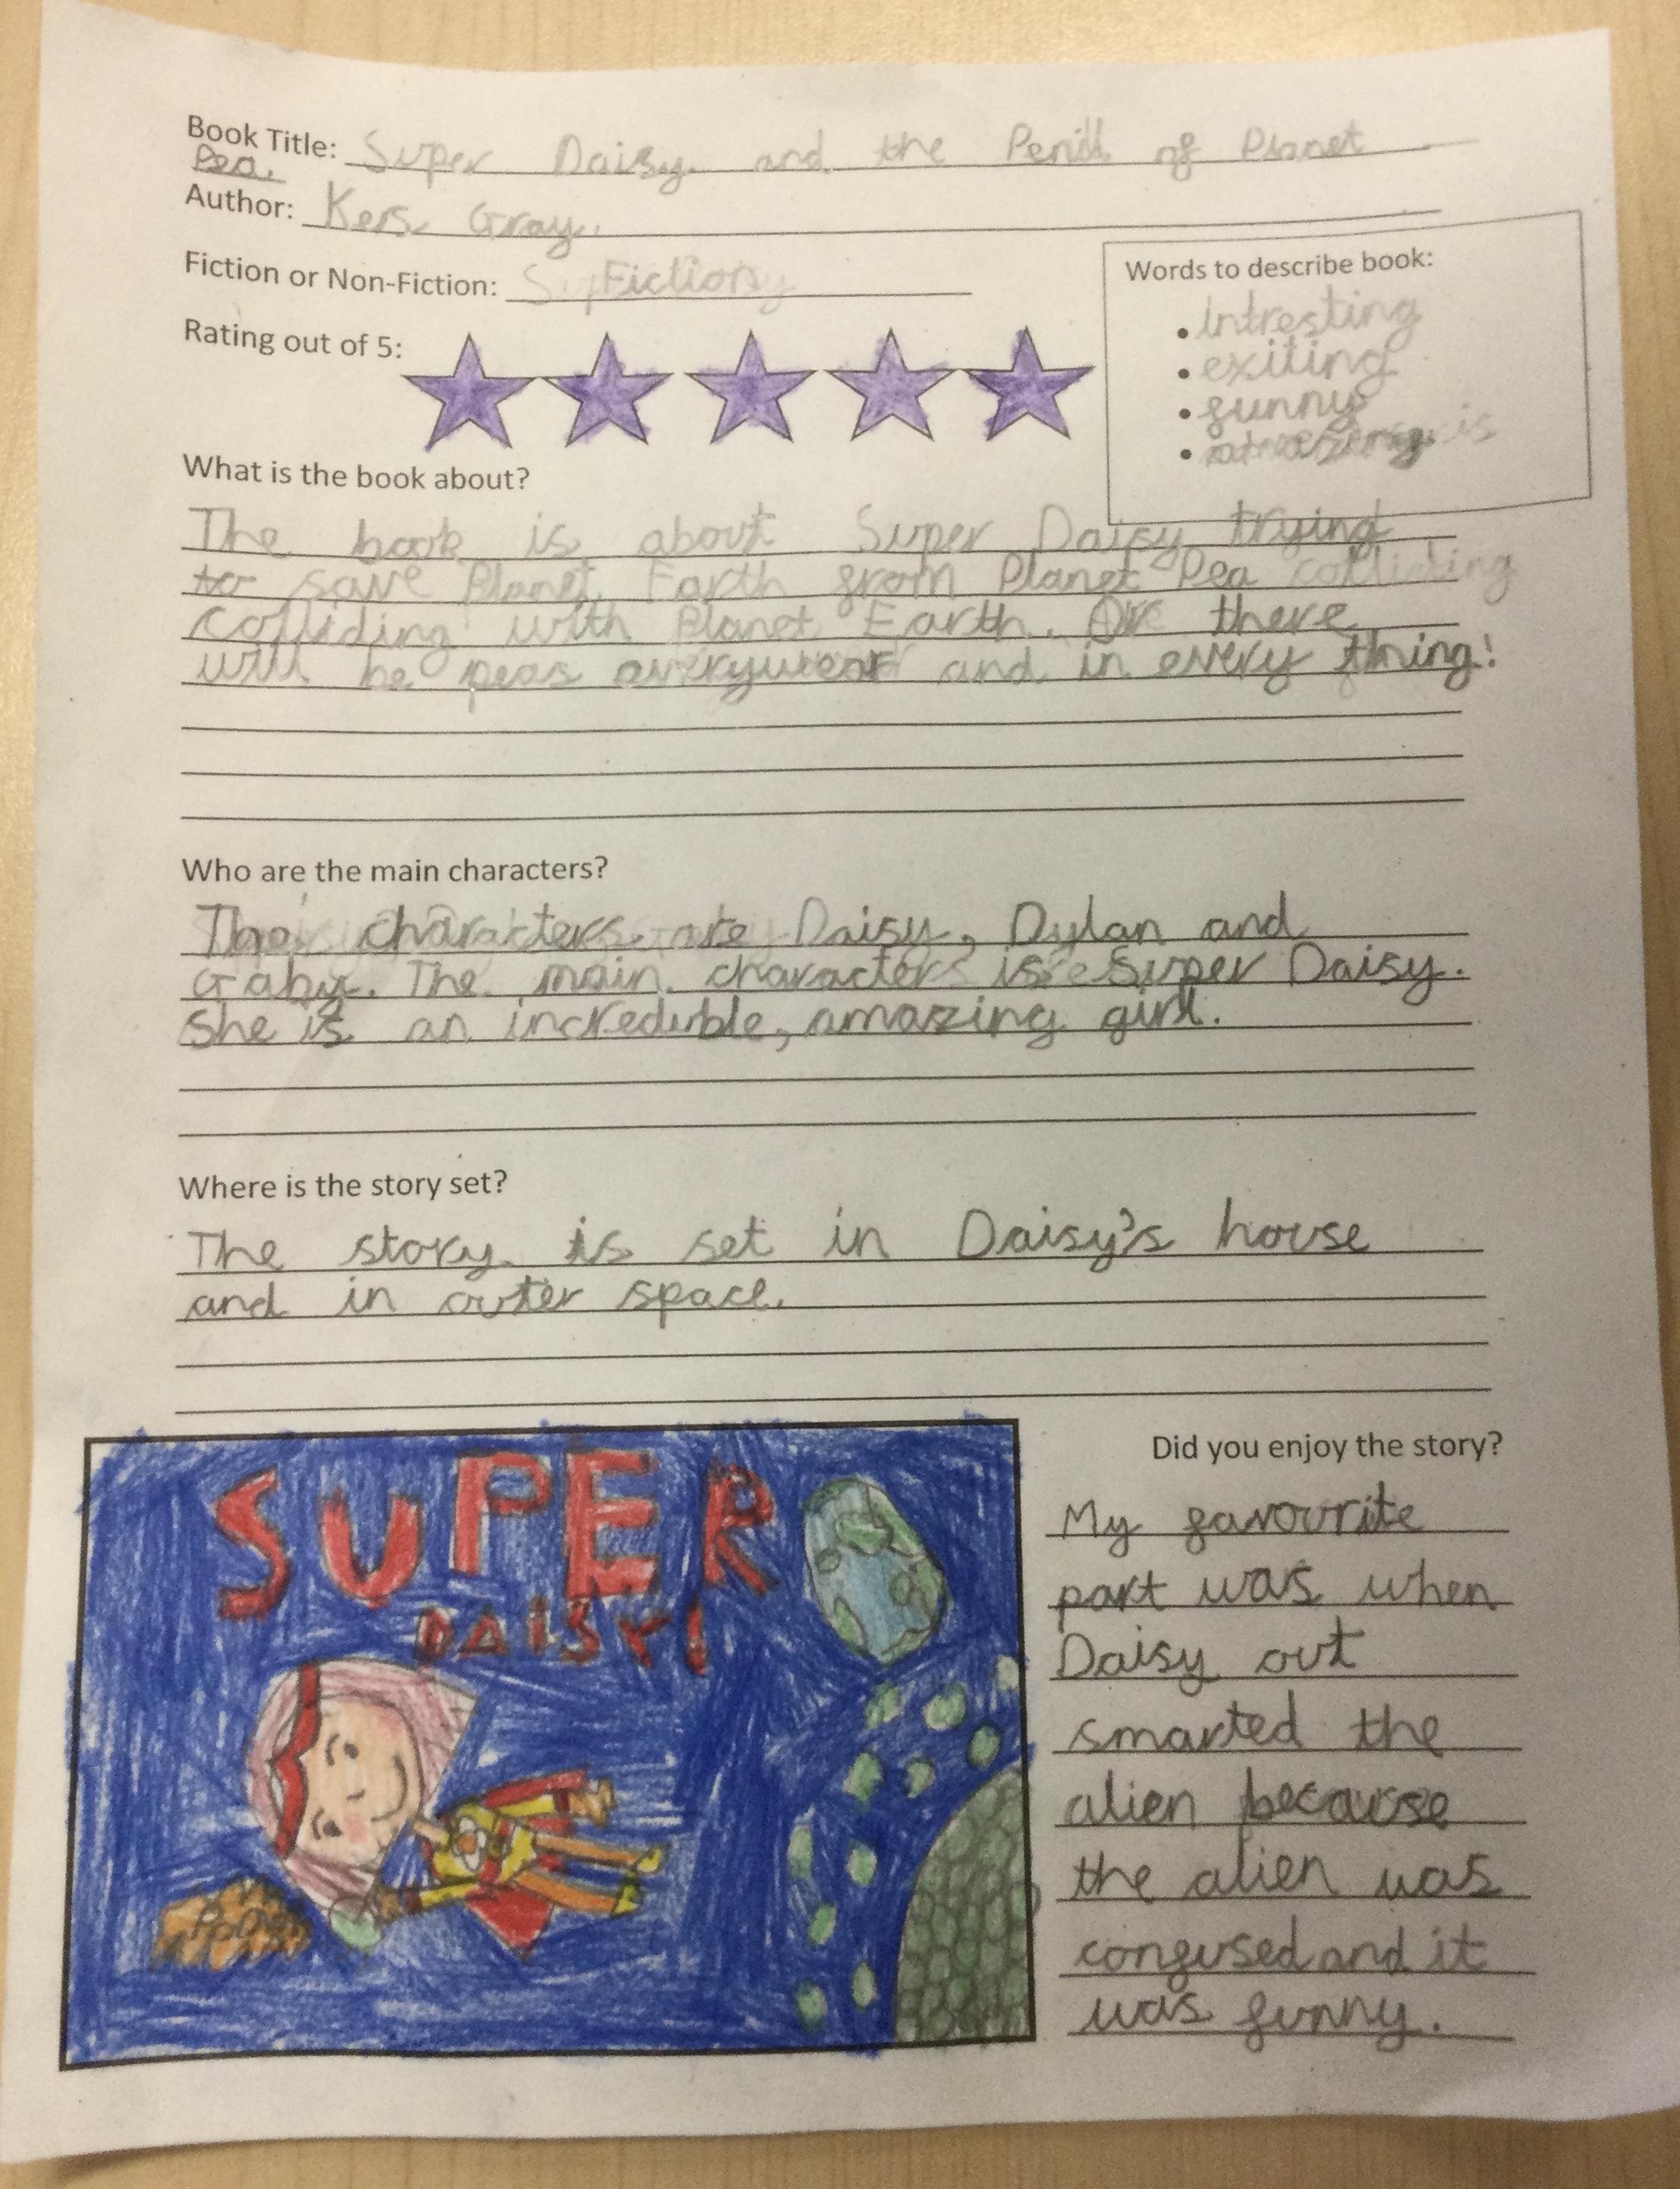 Book Title: Super Daisy and the Perill of Planet
Pea.
Author: Kes Gray.
Fiction or Non-Fiction: Fiction
Words to describe book:
• intresting
• exiting
• funny
•
Rating out of 5:
What is the book about?
The book is about Super Daisy trying
to save Planet Earth from Planet Pea
colliding with Planet Earth. Or there
will be peas and in every thing!
Who are the main characters?
The characters are Daisy, Dylan and
Gaby. The main character is Super Daisy.
She is an increduble, amazing girl.
Where is the story set?
The story is set in Daisy's house
and in outer space.
SUPER
DAISY!
Did you enjoy the story?
My favourite
part was when
Daisy out
smarted the
alien because
the alien was
confused and it
was funny.